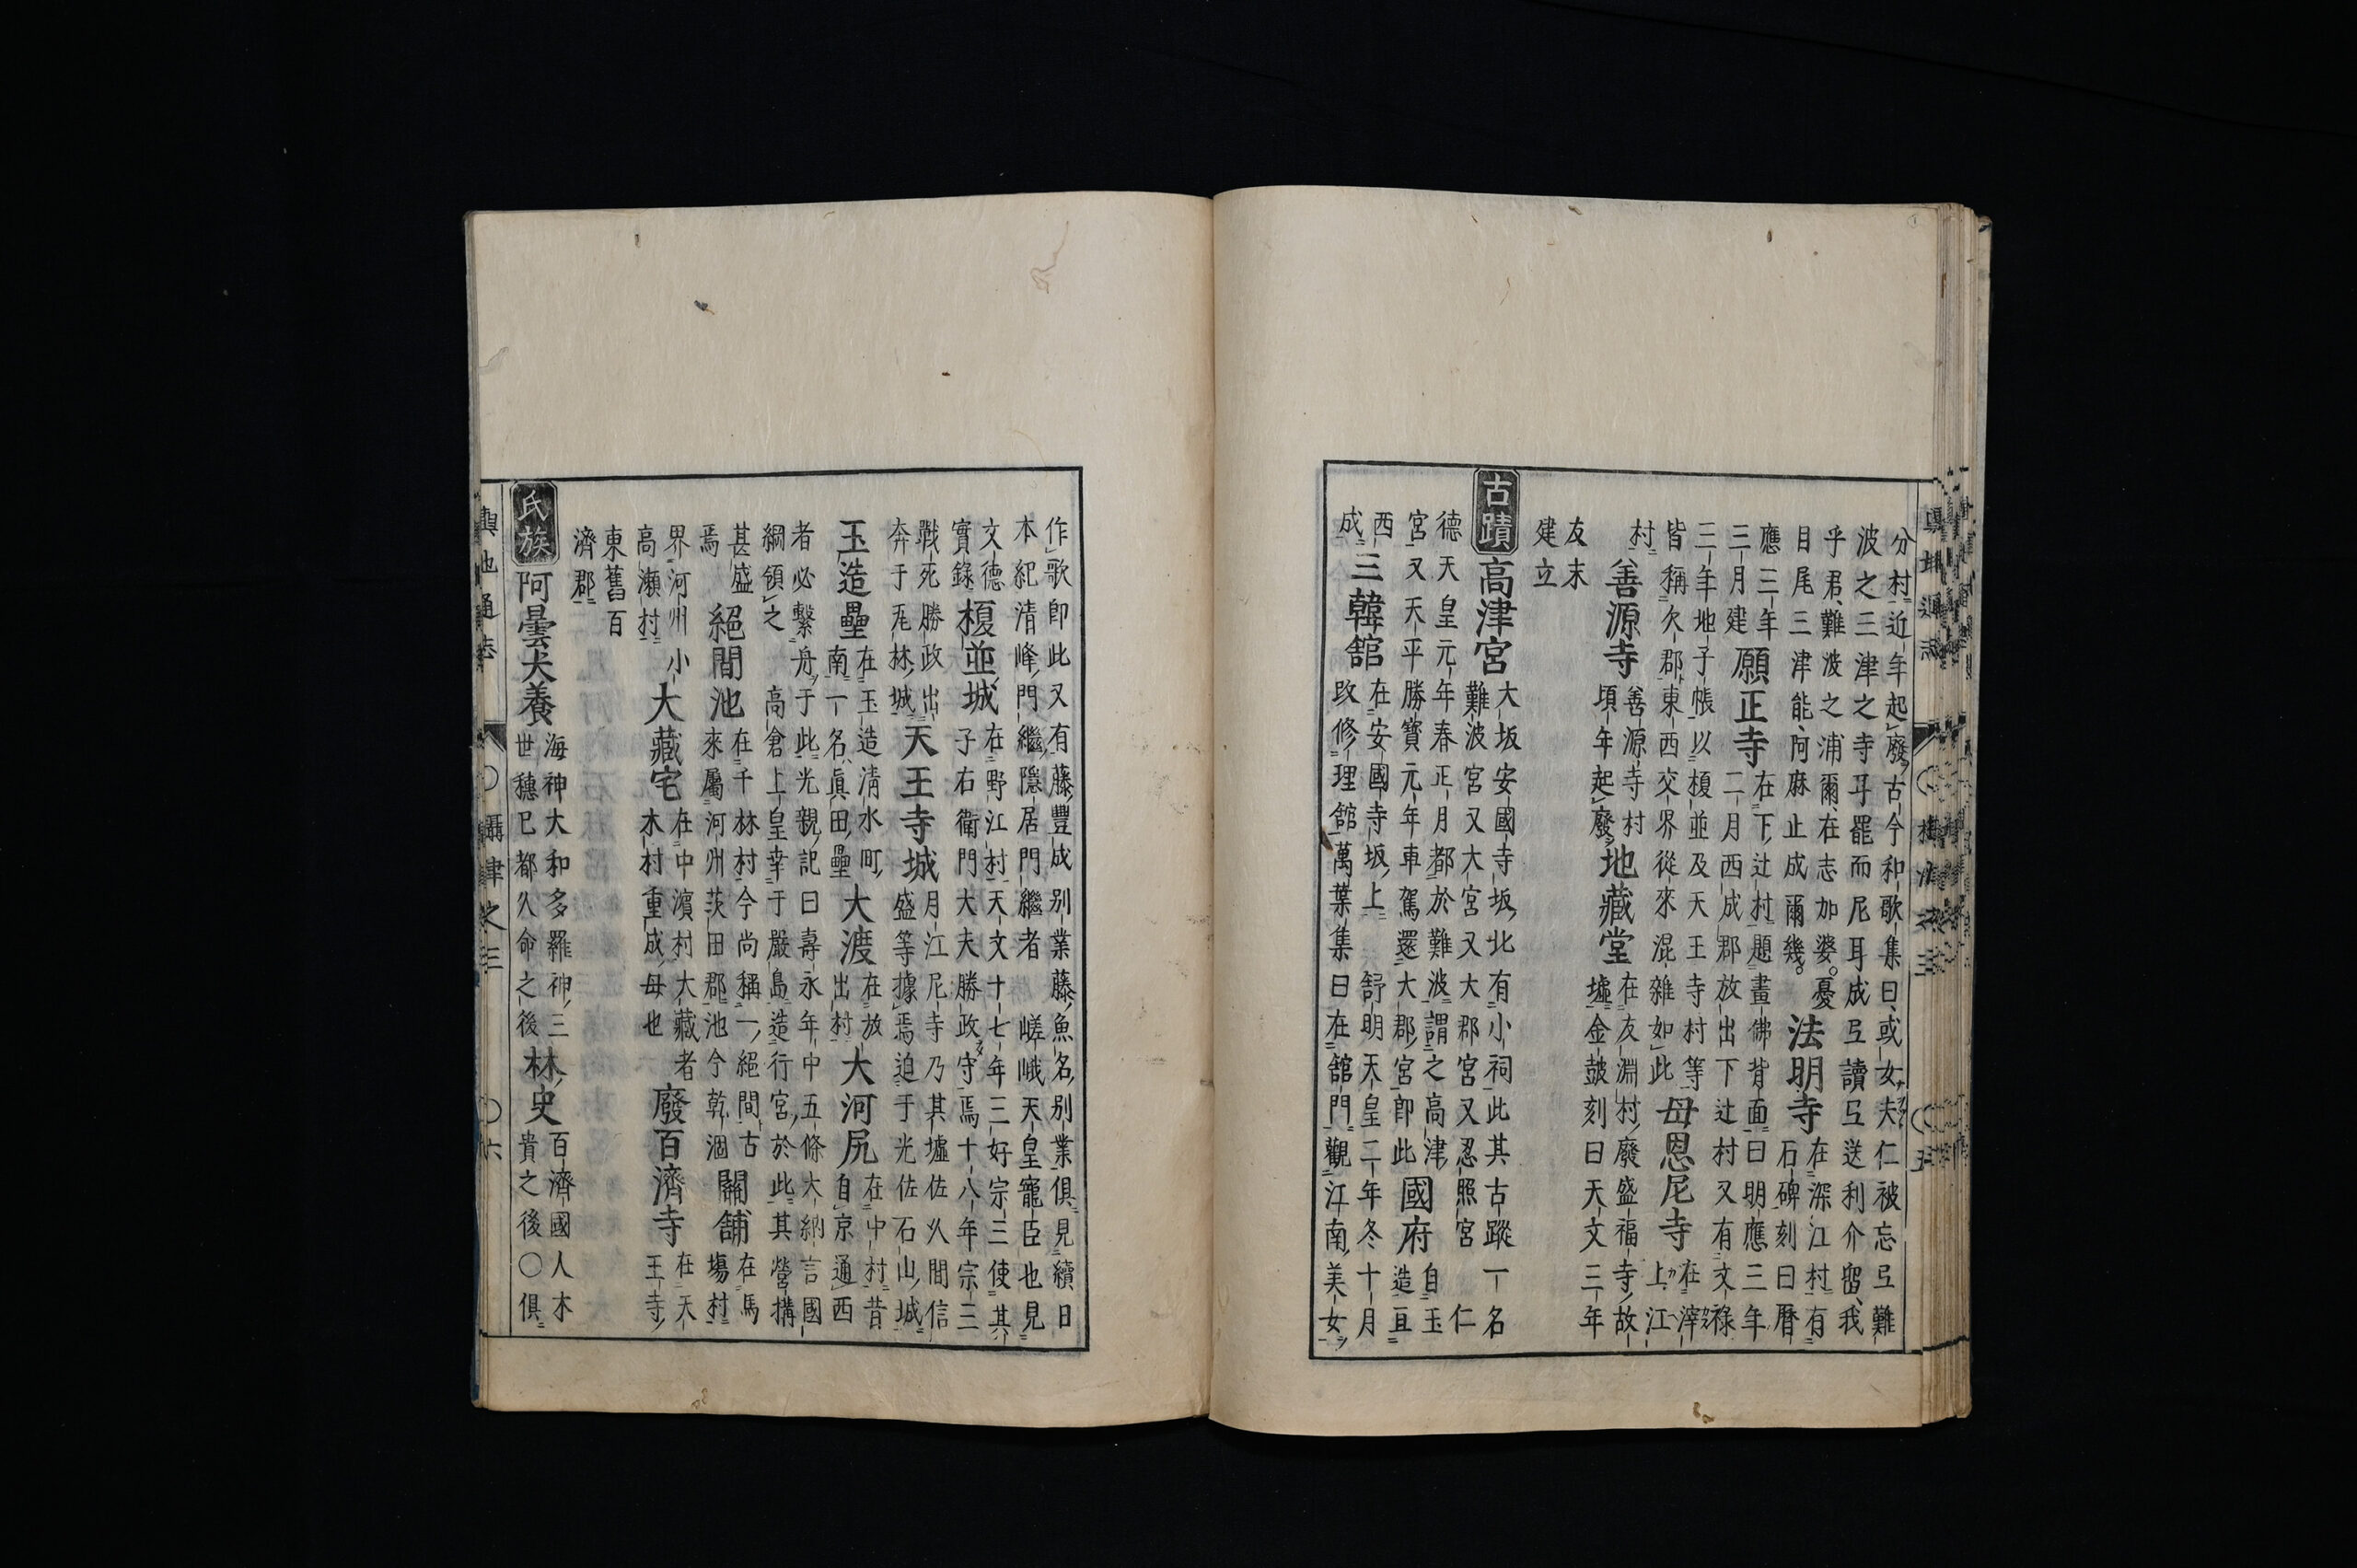 分村近年起廢古今和歌集曰或女夫仁被忘弖難
波之三津之寺耳罷而尼耳成弖讀弖送利介留我
乎君難波之浦爾在志加婆憂
目尾三津能阿麻止成爾幾
法明寺
在深江村有
石碑刻曰曆
應三年
三月建
願正寺
在下辻村題畫佛背面曰明應三年
二月西成郡放出下辻村又有文祿
二年地子帳以榎並及天王寺村等
皆稱欠郡東西交界從來混雜如此
母恩尼寺
在滓
上江
村
善源寺
善源寺村
頃年起廢
地藏堂
在友淵村廢盛福寺故
墟金鼓刻曰天文三年
友末
建立
古蹟
高津宮
大坂安國寺坂北有小祠此其古蹤一名
難波宮又大宮又大郡宮又忍照宮 仁
德天皇元年春正月都於難波謂之高津
宮又天平勝寶元年車駕還大郡宮即此
國府
自玉
造亘
西
成
三韓館
在安國寺坂上 舒明天皇二年冬十月
改修理館萬葉集曰在館門觀江南美女
作歌即此又有藤豐成別業藤魚名別業俱見續日
本紀清峰門繼隱居門繼者嵯峨天皇寵臣也見
文德
實錄
榎並城
在野江村天文十七年三好宗三使其
子右衛門大夫勝政守焉十八年宗三
戰死勝政出
奔于厖林城
天王寺城
月江尼寺乃其墟佐久間信
盛等據焉迫于光佐石山城
玉造壘
在玉造清水町
南一名眞田壘
大渡
在放
出村
大河尻
在中村昔
自京通西
者必繫舟于此光親記曰壽永年中五條大納言國
綱領之 高倉上皇幸于嚴島造行宮於此其營搆
甚盛
焉
絕間池
在千林村今尚稱一絕間古
來屬河州茨田郡池今乾涸
關舖
在馬
塲村
界河州小
高瀬村
大藏宅
在中濱村大藏者
木村重成母也
廢百濟寺
在天
王寺
東舊百
濟郡
氏族
阿曇犬養
海神大和多羅神三
世穗己都久命之後
林史
百濟國人木
貴之後〇俱
輿地通志 〇攝津之三 〇六